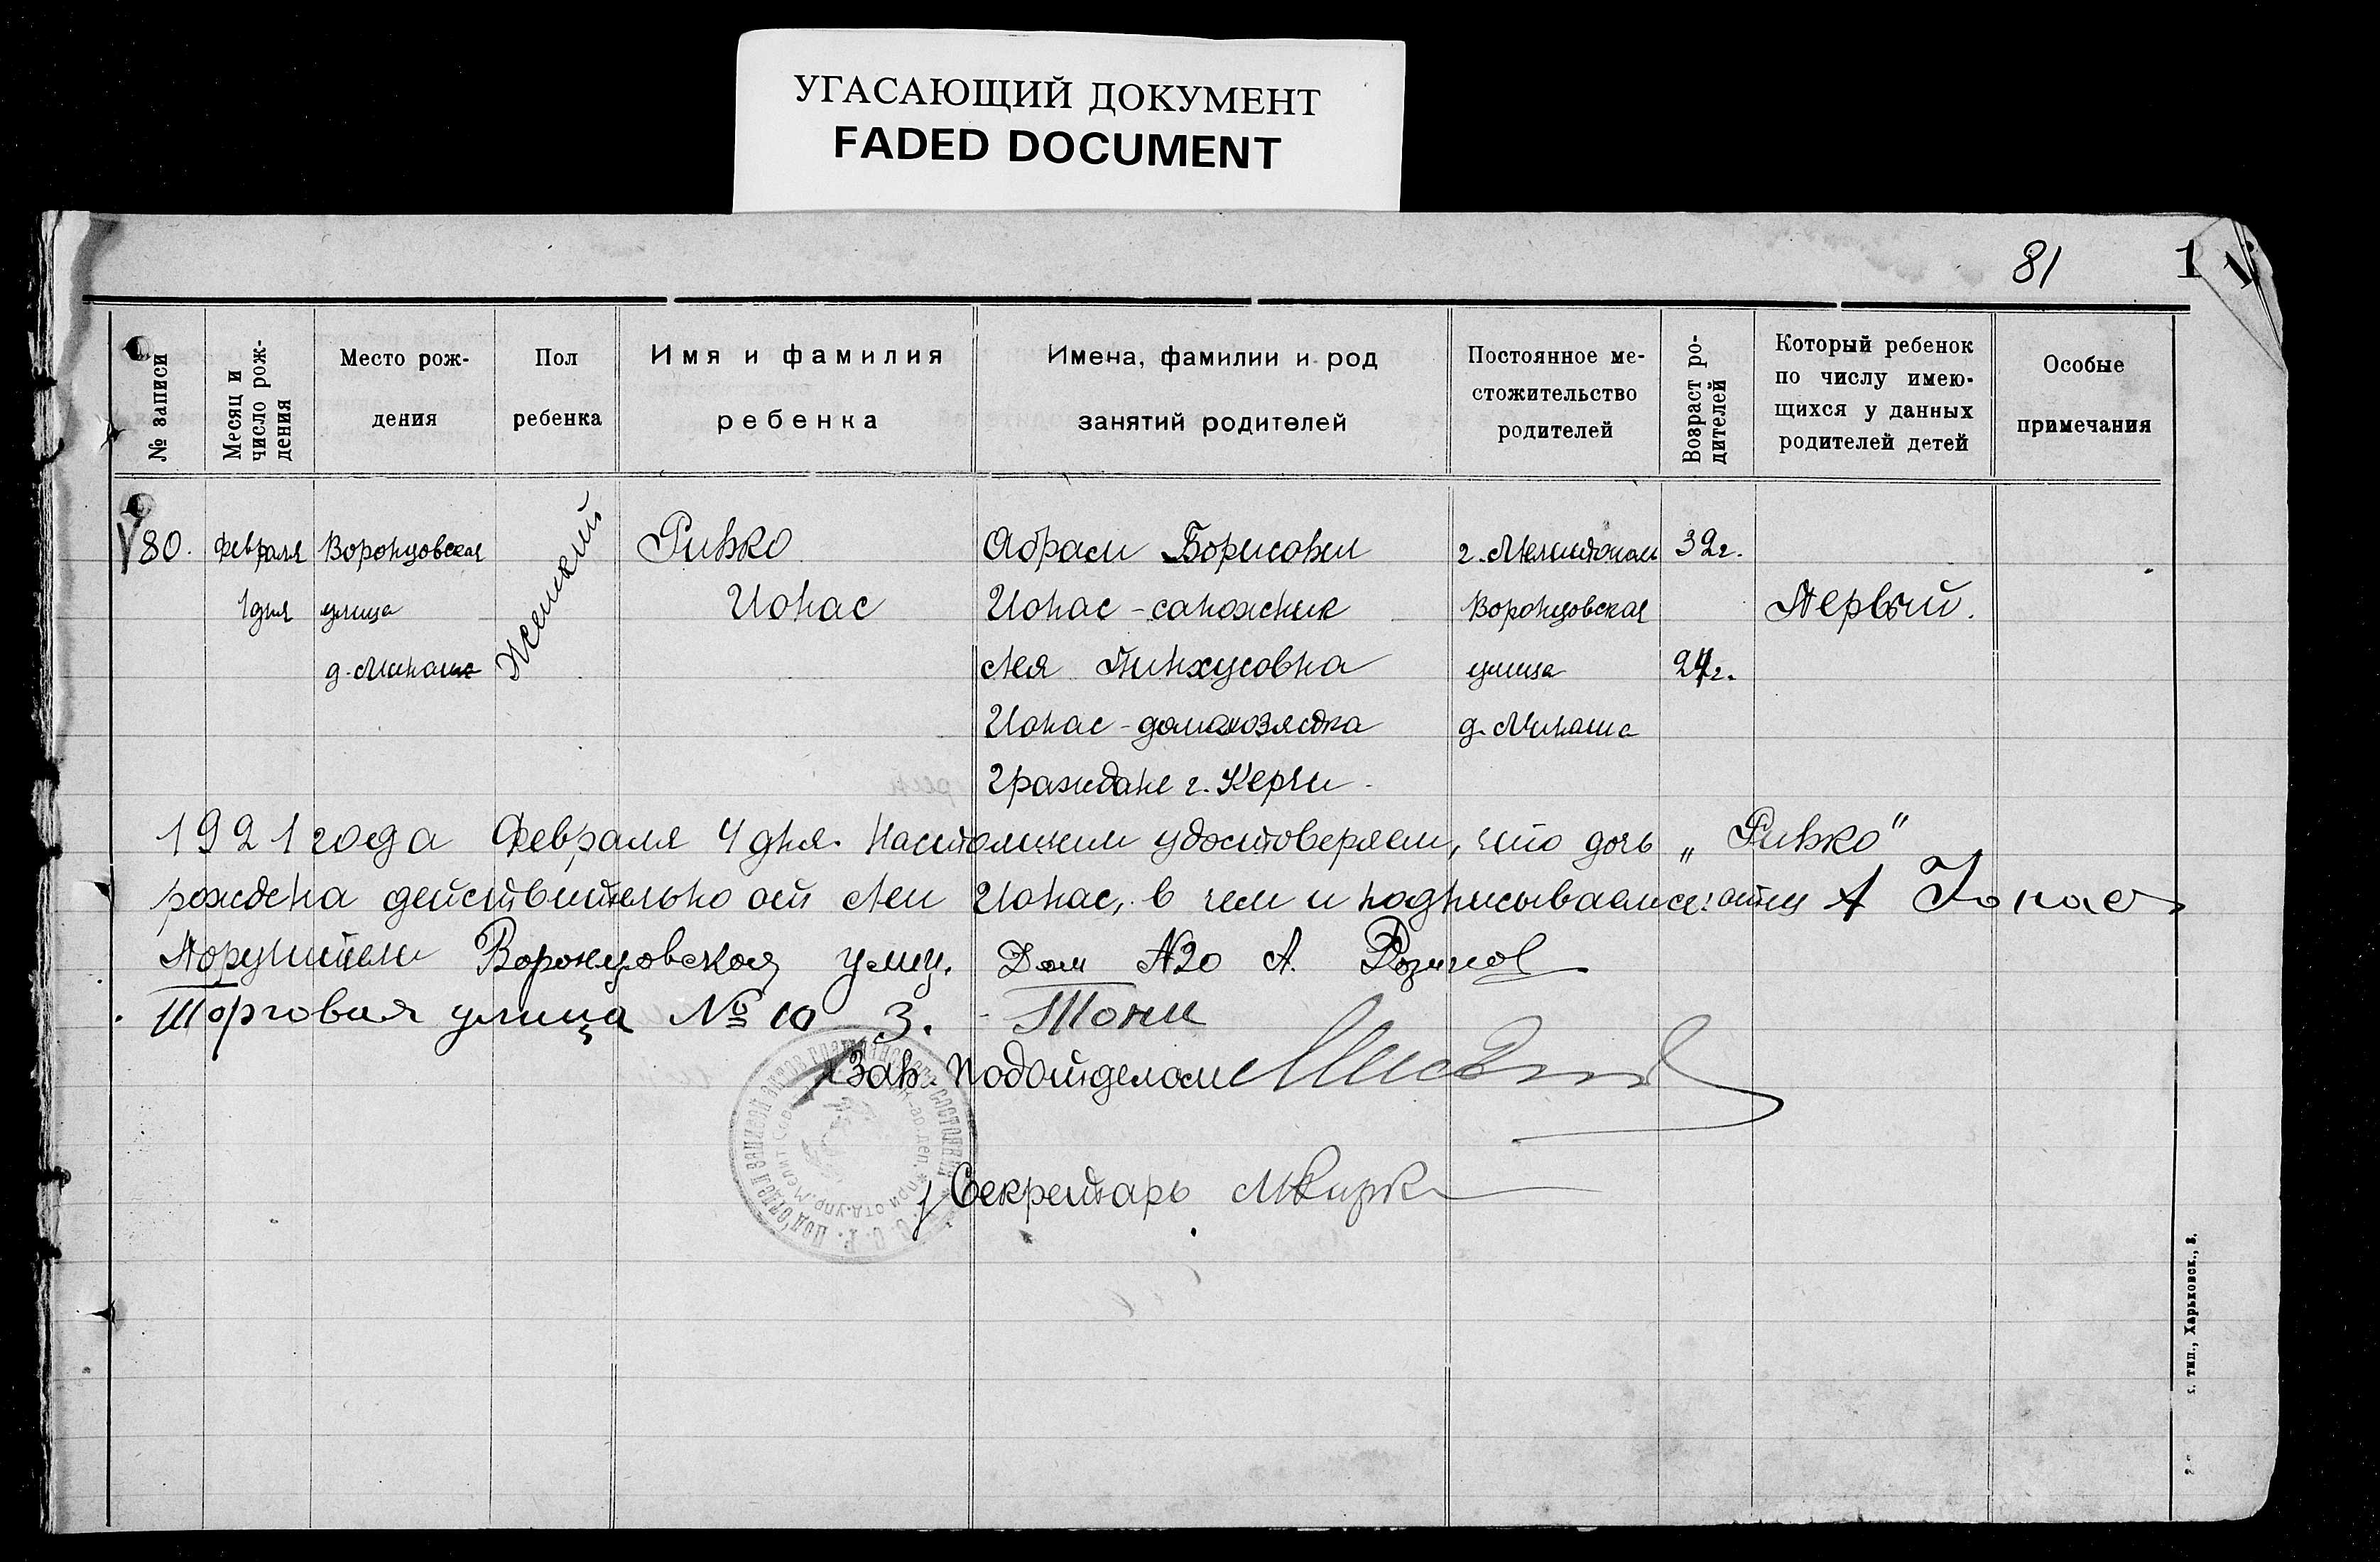 УГАСАЮЩИЙ ДОКУМЕНТ
FADED DOCUMENT
81 1
№ записи
Месяц и число рож-дения
Место рож-
дения
Пол
ребенка
Имя и фамилия
ребенка
Имена, фамилии и род
занятий родителей
Постоянное ме-
стожительство
родителей
Возраст ро-дителей
Который ребенок
по числу имею-
щихся у данных
родителей детей
Особые
примечания
80. Февраля Воронцовская Женский Ривко Абрам Борисович г. Мелитополь 32г.
1 дня улица Ионас Ионас - сапожник Воронцовская Первый.
д. Минаша Лея Пинхусовна улица 24г.
Ионас - домохозяйка д. Минаша
Граждане г. Керчи.
1921 года Февраля 4 дня. Настоящим удостоверяем, что дочь „Ривко"
рождена действительно от Леи Ионас, в чем и подписываемся: отец А Іонас
Поручители Воронцовская улиц. Дом №20 А.
Торговая улица № 10 З.
Зав. Подотделом
Секретарь
тип., Харьковск., 8.